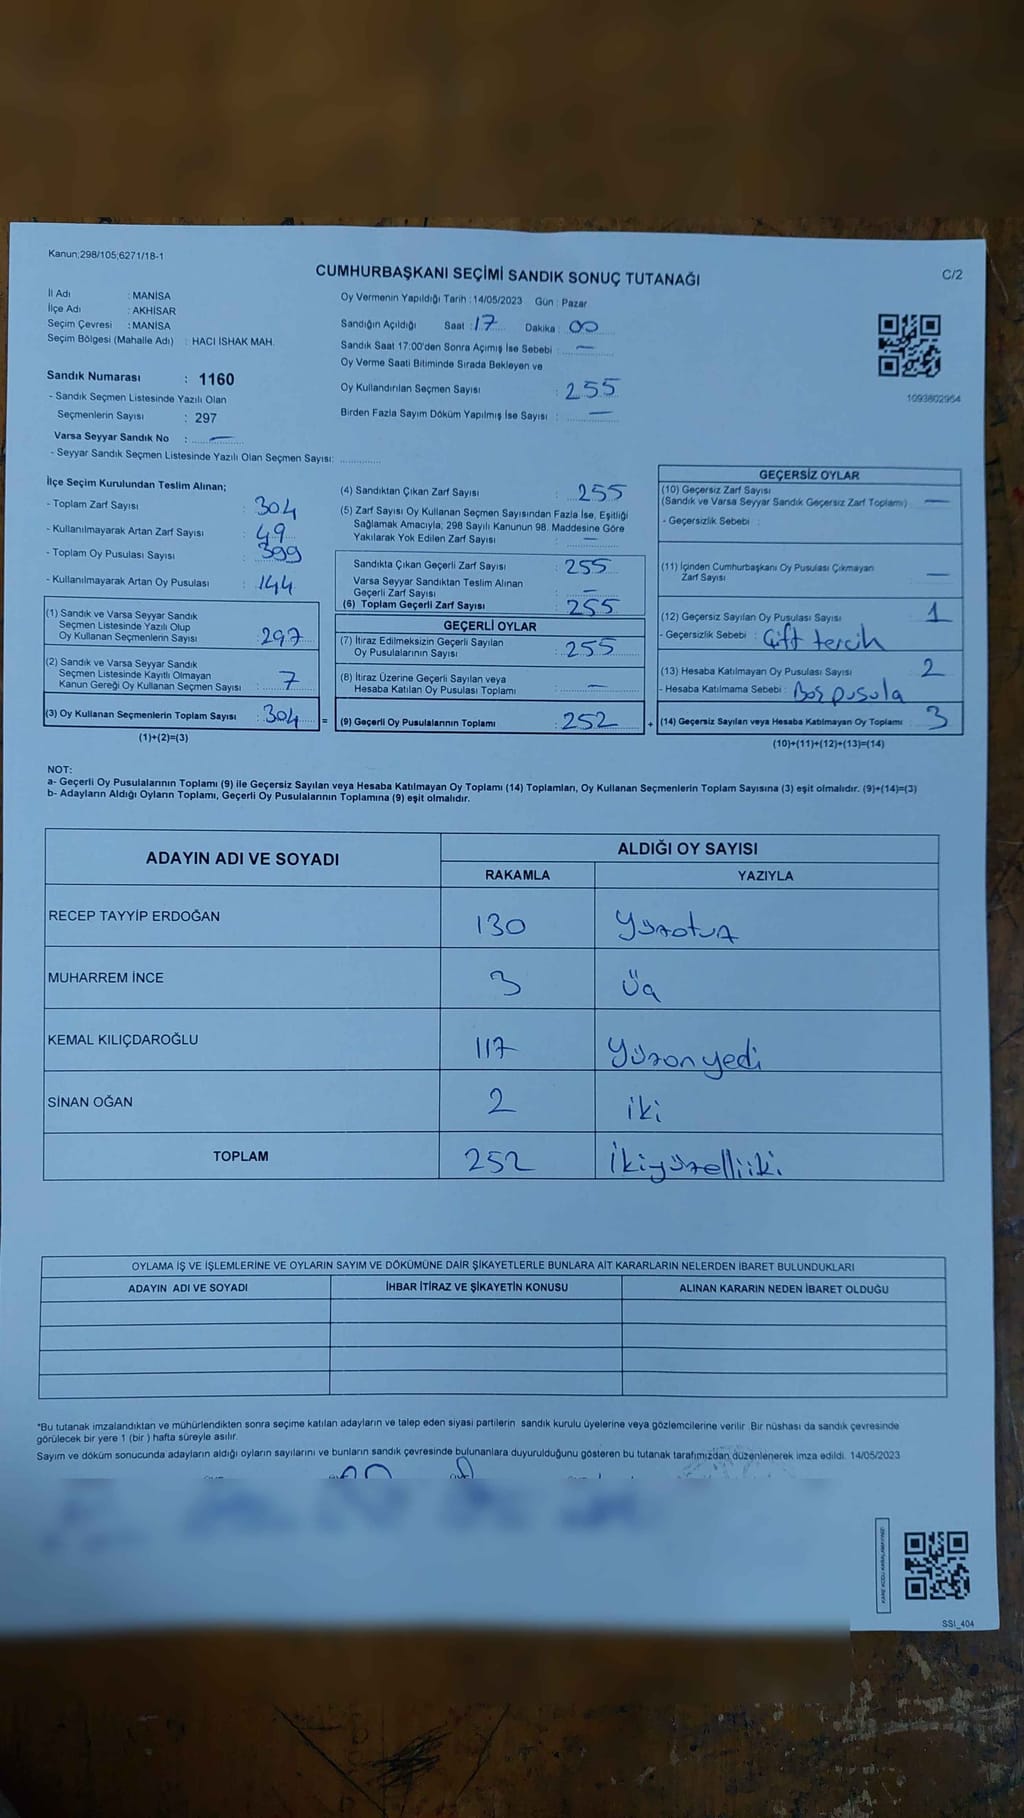 Kanun;298/105;6271/18-1
CUMHURBAŞKANI SEÇİMİ SANDIK SONUÇ TUTANAĞI
C/2
İl Adı : MANİSA
İlçe Adı : AKHİSAR
Seçim Çevresi : MANİSA
Seçim Bölgesi (Mahalle Adı) : HACI İSHAK MAH.
Sandık Numarası : 1160
- Sandık Seçmen Listesinde Yazılı Olan
Seçmenlerin Sayısı : 297
Varsa Seyyar Sandık No : —
- Seyyar Sandık Seçmen Listesinde Yazılı Olan Seçmen Sayısı: ..............
Oy Vermenin Yapıldığı Tarih : 14/05/2023 Gün : Pazar
Sandığın Açıldığı Saat : 17 Dakika : 00
Sandık Saat 17:00'den Sonra Açımış İse Sebebi : —
Oy Verme Saati Bitiminde Sırada Bekleyen ve
Oy Kullandırılan Seçmen Sayısı : 255
Birden Fazla Sayım Döküm Yapılmış İse Sayısı : —
1093802964
İlçe Seçim Kurulundan Teslim Alınan;
- Toplam Zarf Sayısı : 304
- Kullanılmayarak Artan Zarf Sayısı : 49
- Toplam Oy Pusulası Sayısı : 399
- Kullanılmayarak Artan Oy Pusulası : 144
(1) Sandık ve Varsa Seyyar Sandık
Seçmen Listesinde Yazılı Olup
Oy Kullanan Seçmenlerin Sayısı : 297
(2) Sandık ve Varsa Seyyar Sandık
Seçmen Listesinde Kayıtlı Olmayan
Kanun Gereği Oy Kullanan Seçmen Sayısı : 7
(3) Oy Kullanan Seçmenlerin Toplam Sayısı : 304 =
(1)+(2)=(3)
(4) Sandıktan Çıkan Zarf Sayısı : 255
(5) Zarf Sayısı Oy Kullanan Seçmen Sayısından Fazla İse, Eşitliği
Sağlamak Amacıyla, 298 Sayılı Kanunun 98. Maddesine Göre
Yakılarak Yok Edilen Zarf Sayısı : —
Sandıkta Çıkan Geçerli Zarf Sayısı : 255
Varsa Seyyar Sandıktan Teslim Alınan
Geçerli Zarf Sayısı : —
(6) Toplam Geçerli Zarf Sayısı : 255
GEÇERLİ OYLAR
(7) İtiraz Edilmeksizin Geçerli Sayılan
Oy Pusulalarının Sayısı : 255
(8) İtiraz Üzerine Geçerli Sayılan veya
Hesaba Katılan Oy Pusulası Toplamı : —
(9) Geçerli Oy Pusulalarının Toplamı : 252 +
GEÇERSİZ OYLAR
(10) Geçersiz Zarf Sayısı
(Sandık ve Varsa Seyyar Sandık Geçersiz Zarf Toplamı) : —
- Geçersizlik Sebebi :
(11) İçinden Cumhurbaşkanı Oy Pusulası Çıkmayan
Zarf Sayısı —
(12) Geçersiz Sayılan Oy Pusulası Sayısı : 1
- Geçersizlik Sebebi : Çift tercih
(13) Hesaba Katılmayan Oy Pusulası Sayısı : 2
- Hesaba Katılmama Sebebi : Boş pusula
(14) Geçersiz Sayılan veya Hesaba Katılmayan Oy Toplamı : 3
(10)+(11)+(12)+(13)=(14)
NOT:
a- Geçerli Oy Pusulalarının Toplamı (9) ile Geçersiz Sayılan veya Hesaba Katılmayan Oy Toplamı (14) Toplamları, Oy Kullanan Seçmenlerin Toplam Sayısına (3) eşit olmalıdır. (9)+(14)=(3)
b- Adayların Aldığı Oyların Toplamı, Geçerli Oy Pusulalarının Toplamına (9) eşit olmalıdır.
ADAYIN ADI VE SOYADI ALDIĞI OY SAYISI
RAKAMLA YAZIYLA
RECEP TAYYİP ERDOĞAN 130 Yüzotuz
MUHARREM İNCE 3 Üç
KEMAL KILIÇDAROĞLU 117 Yüzonyedi
SİNAN OĞAN 2 iki
TOPLAM 252 İkiyüzelliiki
OYLAMA İŞ VE İŞLEMLERİNE VE OYLARIN SAYIM VE DÖKÜMÜNE DAİR ŞİKAYETLERLE BUNLARA AİT KARARLARIN NELERDEN İBARET BULUNDUKLARI
ADAYIN ADI VE SOYADI İHBAR İTİRAZ VE ŞİKAYETİN KONUSU ALINAN KARARIN NEDEN İBARET OLDUĞU
*Bu tutanak imzalandıktan ve mühürlendikten sonra seçime katılan adayların ve talep eden siyasi partilerin sandık kurulu üyelerine veya gözlemcilerine verilir. Bir nüshası da sandık çevresinde
görülecek bir yere 1 (bir ) hafta süreyle asılır.
Sayım ve döküm sonucunda adayların aldığı oyların sayılarını ve bunların sandık çevresinde bulunanlara duyurulduğunu gösteren bu tutanak tarafımızdan düzenlenerek imza edildi. 14/05/2023
SSI_404